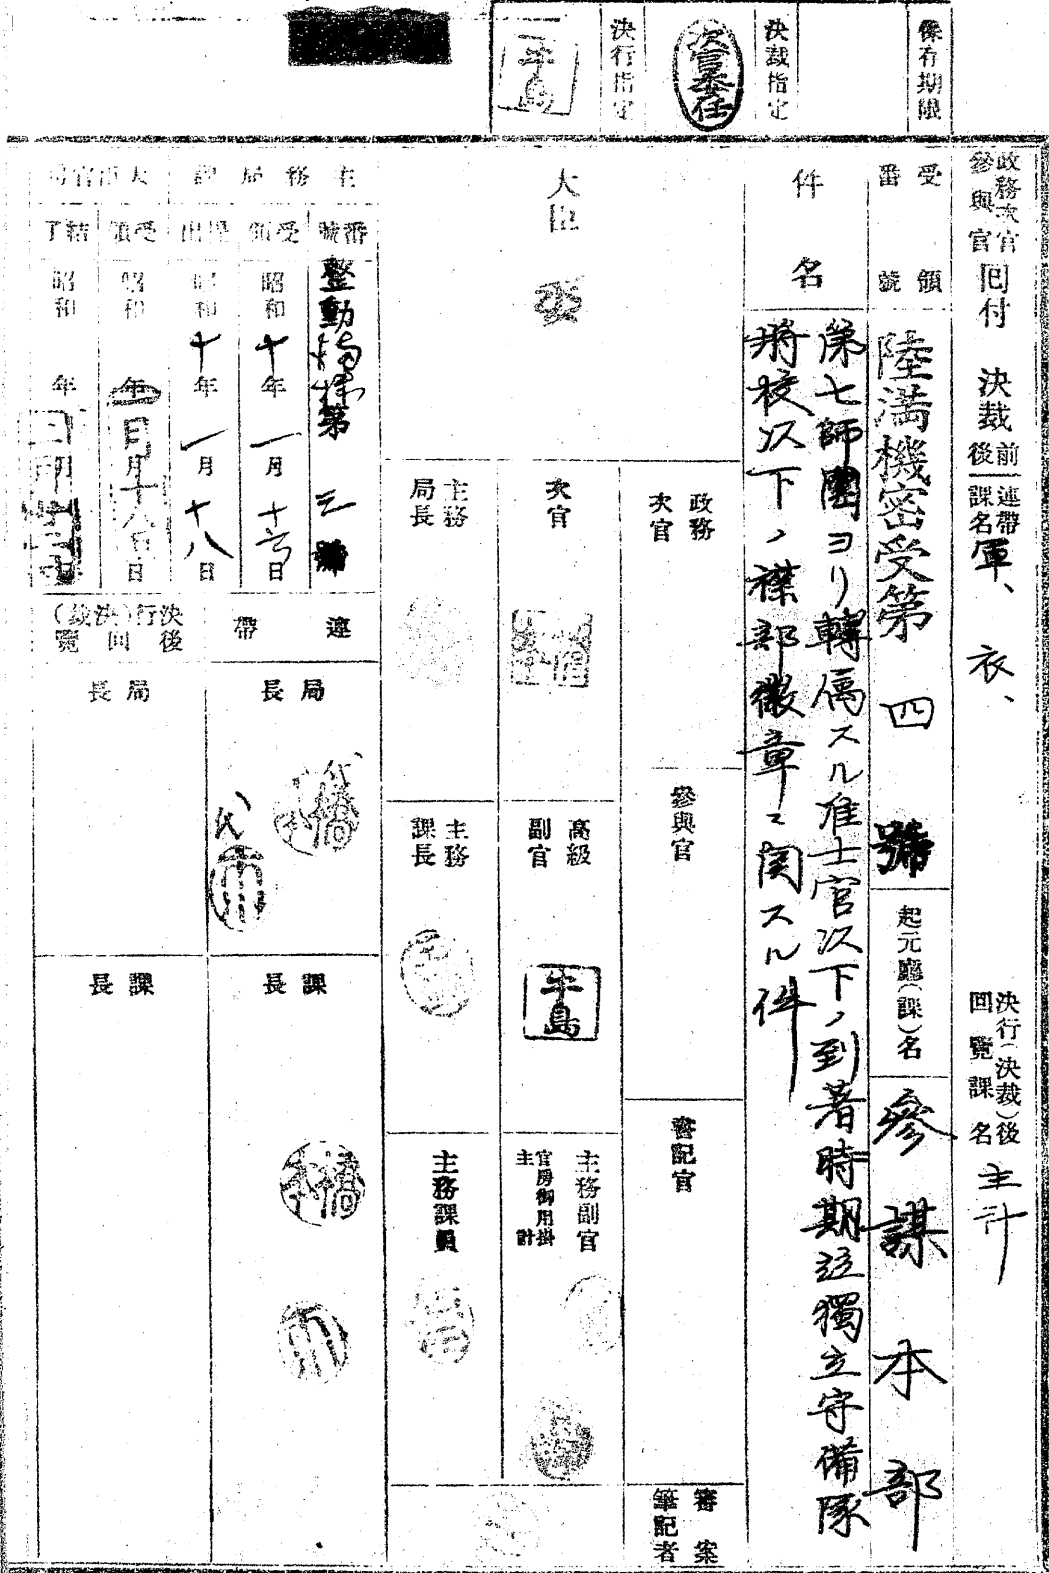 保存期限
決裁指定
次官委任
決行指定
牛島
政務次官
參與官
回付
決裁
前
後
連帶
課名
軍、衣、
決行(決裁)後
回覽課名
主計
受領
番號
陸満機密受第四號
起元廳(課)名
參謀本部
件名
第七師團ヨリ轉属スル准士官以下ノ到著時期竝獨立守備隊
将校以下ノ襟部徽章ニ関スル件
大臣
委
政務
次官
參與官
書記官
審案
筆記者
次官
高級
副官
牛島
主務副官
官房御用掛
主計
主務
局長
主務
課長
主務課員
主務局課
番號
整動
第三號
受領
昭和十年一月十六日
提出
昭和十年一月十八日
大臣官房
受領
昭和
年
月十八日
結了
昭和
年
連帶
局長
代
課長
決行(決裁)後
回覽
局長
課長